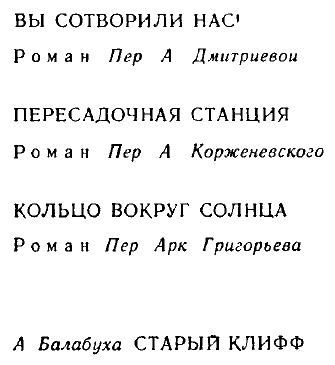 ВЫ СОТВОРИЛИ НАС!
Роман Пер А Дмитриевой
ПЕРЕСАДОЧНАЯ СТАНЦИЯ
Роман Пер А Корженевского
КОЛЬЦО ВОКРУГ СОЛНЦА
Роман Пер Арк Григорьева
А Балабуха СТАРЫЙ КЛИФФ